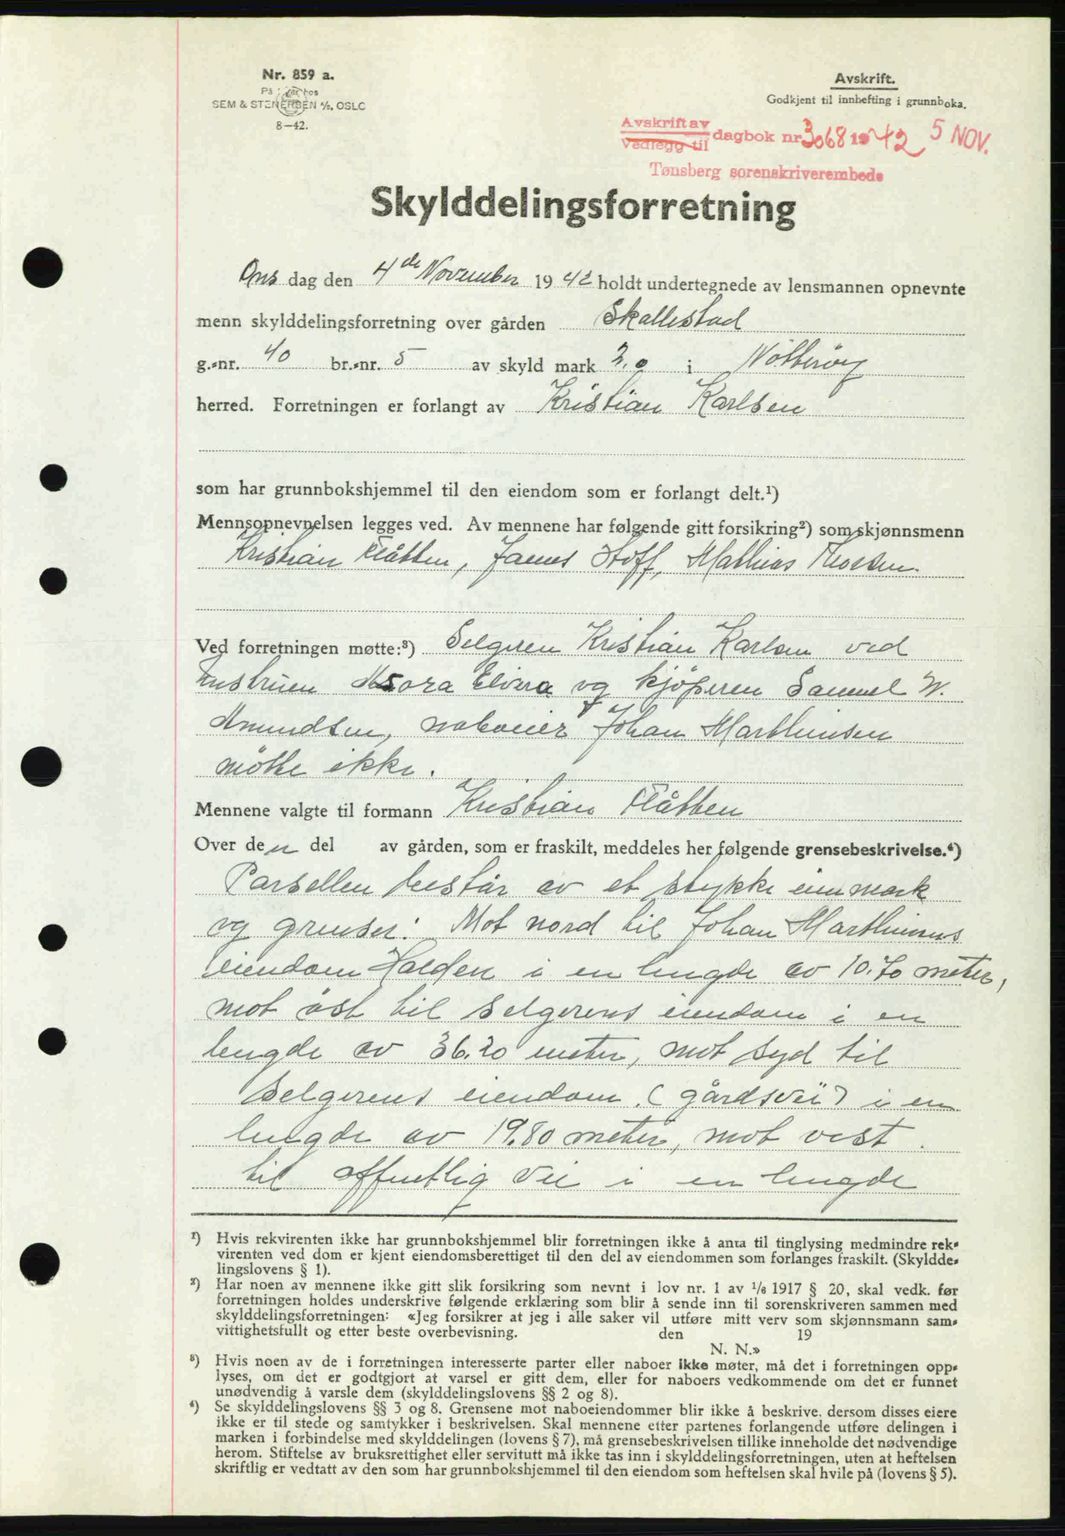 Nr. 859 a.
På lager hos
SEM & STENERSEN A/S, OSLO
8—42.
Avskrift.
Godkjent til innhefting i grunnboka.
Avskrift av
Vedlegg til
dagbok nr 3068 19 42 5 NOV.
Tønsberg sorenskriverembede
Skylddelingsforretning
Ons dag den 4de November 1942 holdt undertegnede av lensmannen opnevnte
menn skylddelingsforretning over gården Skallestad
g.-nr. 40 br.-nr. 5 av skyld mark 2.0 i Nøtterøy
herred. Forretningen er forlangt av Kristian Karlsen
som har grunnbokshjemmel til den eiendom som er forlangt delt.¹)
Mennsopnevnelsen legges ved. Av mennene har følgende gitt forsikring²) som skjønnsmenn
Kristian Flåtten, James Hoff, Mathias Thorsen
Ved forretningen møtte:³) Selgeren Kristian Karlsen ved
hustruen Elvira og kjøperen Samuel W.
Amundsen, naboeier Johan Marthinsen
møtte ikke.
Mennene valgte til formann Kristian Flåtten
Over den del av gården, som er fraskilt, meddeles her følgende grensebeskrivelse.⁴)
Parsellen består av et stykke mark
og grenser: Mot nord til Johan Marthinsens
eiendom Halden i en lengde av 10.70 meter,
mot øst til selgerens eiendom i en
lengde av 36.20 meter, mot syd til
selgerens eiendom (gårdsvei) i en
lengde av 19.80 meter, mot vest
til offentlig vei i en lengde
¹) Hvis rekvirenten ikke har grunnbokshjemmel blir forretningen ikke å anta til tinglysing medmindre rek-
virenten ved dom er kjent eiendomsberettiget til den del av eiendommen som forlanges fraskilt. (Skyldde-
lingslovens § 1).
²) Har noen av mennene ikke gitt slik forsikring som nevnt i lov nr. 1 av 1/6 1917 § 20, skal vedk. før
forretningen holdes underskrive følgende erklæring som blir å sende inn til sorenskriveren sammen med
skylddelingsforretningen: «Jeg forsikrer at jeg i alle saker vil utføre mitt verv som skjønnsmann sam-
vittighetsfullt og etter beste overbevisning. den 19
N. N.»
³) Hvis noen av de i forretningen interesserte parter eller naboer ikke møter, må det i forretningen opp-
lyses, om det er godtgjort at varsel er gitt dem, eller for naboers vedkommende om det er funnet
unødvendig å varsle dem (skylddelingslovens §§ 2 og 8).
⁴) Se skylddelingslovens §§ 3 og 8. Grensene mot naboeiendommer blir ikke å beskrive, dersom disses eiere
ikke er til stede og samtykker i beskrivelsen. Skal mennene etter partenes forlangende utføre delingen i
marken i forbindelse med skylddelingen (lovens § 7), må grensebeskrivelsen tillike inneholde det nødvendige
herom. Stiftelse av bruksrettighet eller servitutt må ikke tas inn i skylddelingsforretningen, uten at heftelsen
skriftlig er vedtatt av den som har grunnbokshjemmel til den eiendom som heftelsen skal hvile på (lovens § 5).